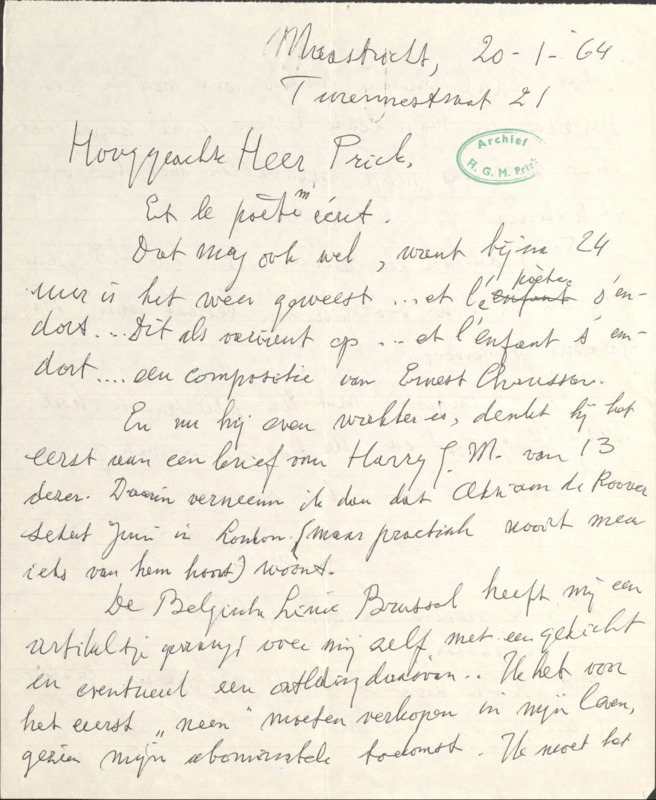 Maastricht, 20-1-'64
Turennestraat 21
Hooggeachte Heer Prick,
Archief
H. G. M. Prick
Et le poète m'écrit.
Dat mag ook wel, want bijna 24
uur is het weer geweest ... et l'enfant poète s'en-
dort... Dit als variant op ... et l'enfant s'en-
dort.... een compositie van Ernest Chausson.
En nu hij even wakker is, denkt hij het
eerst aan een brief van Harry G. M. van 13
dezer. Daarin verneem ik dan dat Adriaan de Roover
sedert Juni in London (maar practisch nooit meer
iets van hem hoort) woont.
De Belgische Linie Brussel heeft mij een
artikeltje gevraagd over mij zelf met een gedicht
en eventueel een ontleding daarvan.. Ik heb voor
het eerst „neen" moeten verkopen in mijn leven,
gezien mijn abominabele toekomst. Ik moet het